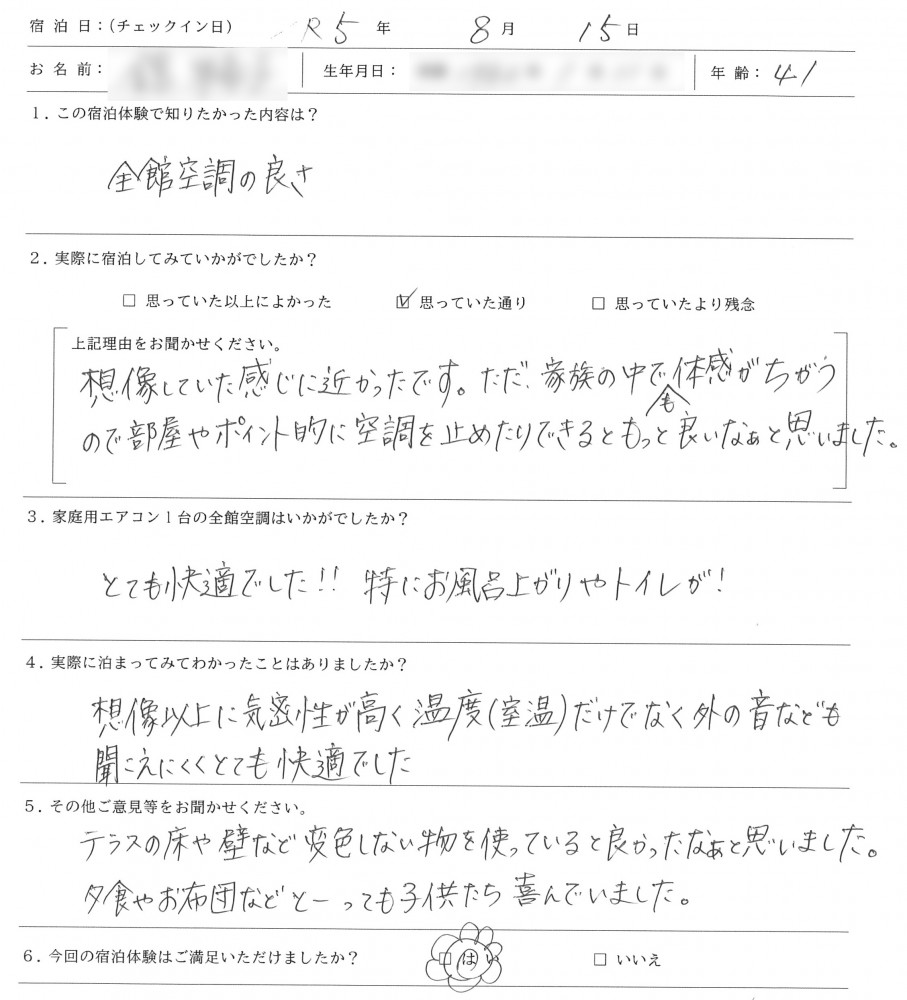 宿 泊 日：(チェックイン日) R5 年 8 月 15 日
お 名 前： 生年月日： 年 齢： 41
1. この宿泊体験で知りたかった内容は？
全館空調の良さ
2. 実際に宿泊してみていかがでしたか？
□ 思っていた以上によかった ☑ 思っていた通り □ 思っていたより残念
上記理由をお聞かせください。
想像していた感じに近かったです。ただ、家族の中でも体感がちがう
ので部屋やポイント的に空調を止めたりできるともっと良いなぁと思いました。
3. 家庭用エアコン1台の全館空調はいかがでしたか？
とても快適でした!! 特にお風呂上がりやトイレが!
4. 実際に泊まってみてわかったことはありましたか？
想像以上に気密性が高く温度(室温)だけでなく外の音なども
聞こえにくくとても快適でした
5. その他ご意見等をお聞かせください。
テラスの床や壁など変色しない物を使っていると良かったなぁと思いました。
夕食やお布団などとーっても子供たち喜んでいました。
6. 今回の宿泊体験はご満足いただけましたか？ □ はい □ いいえ